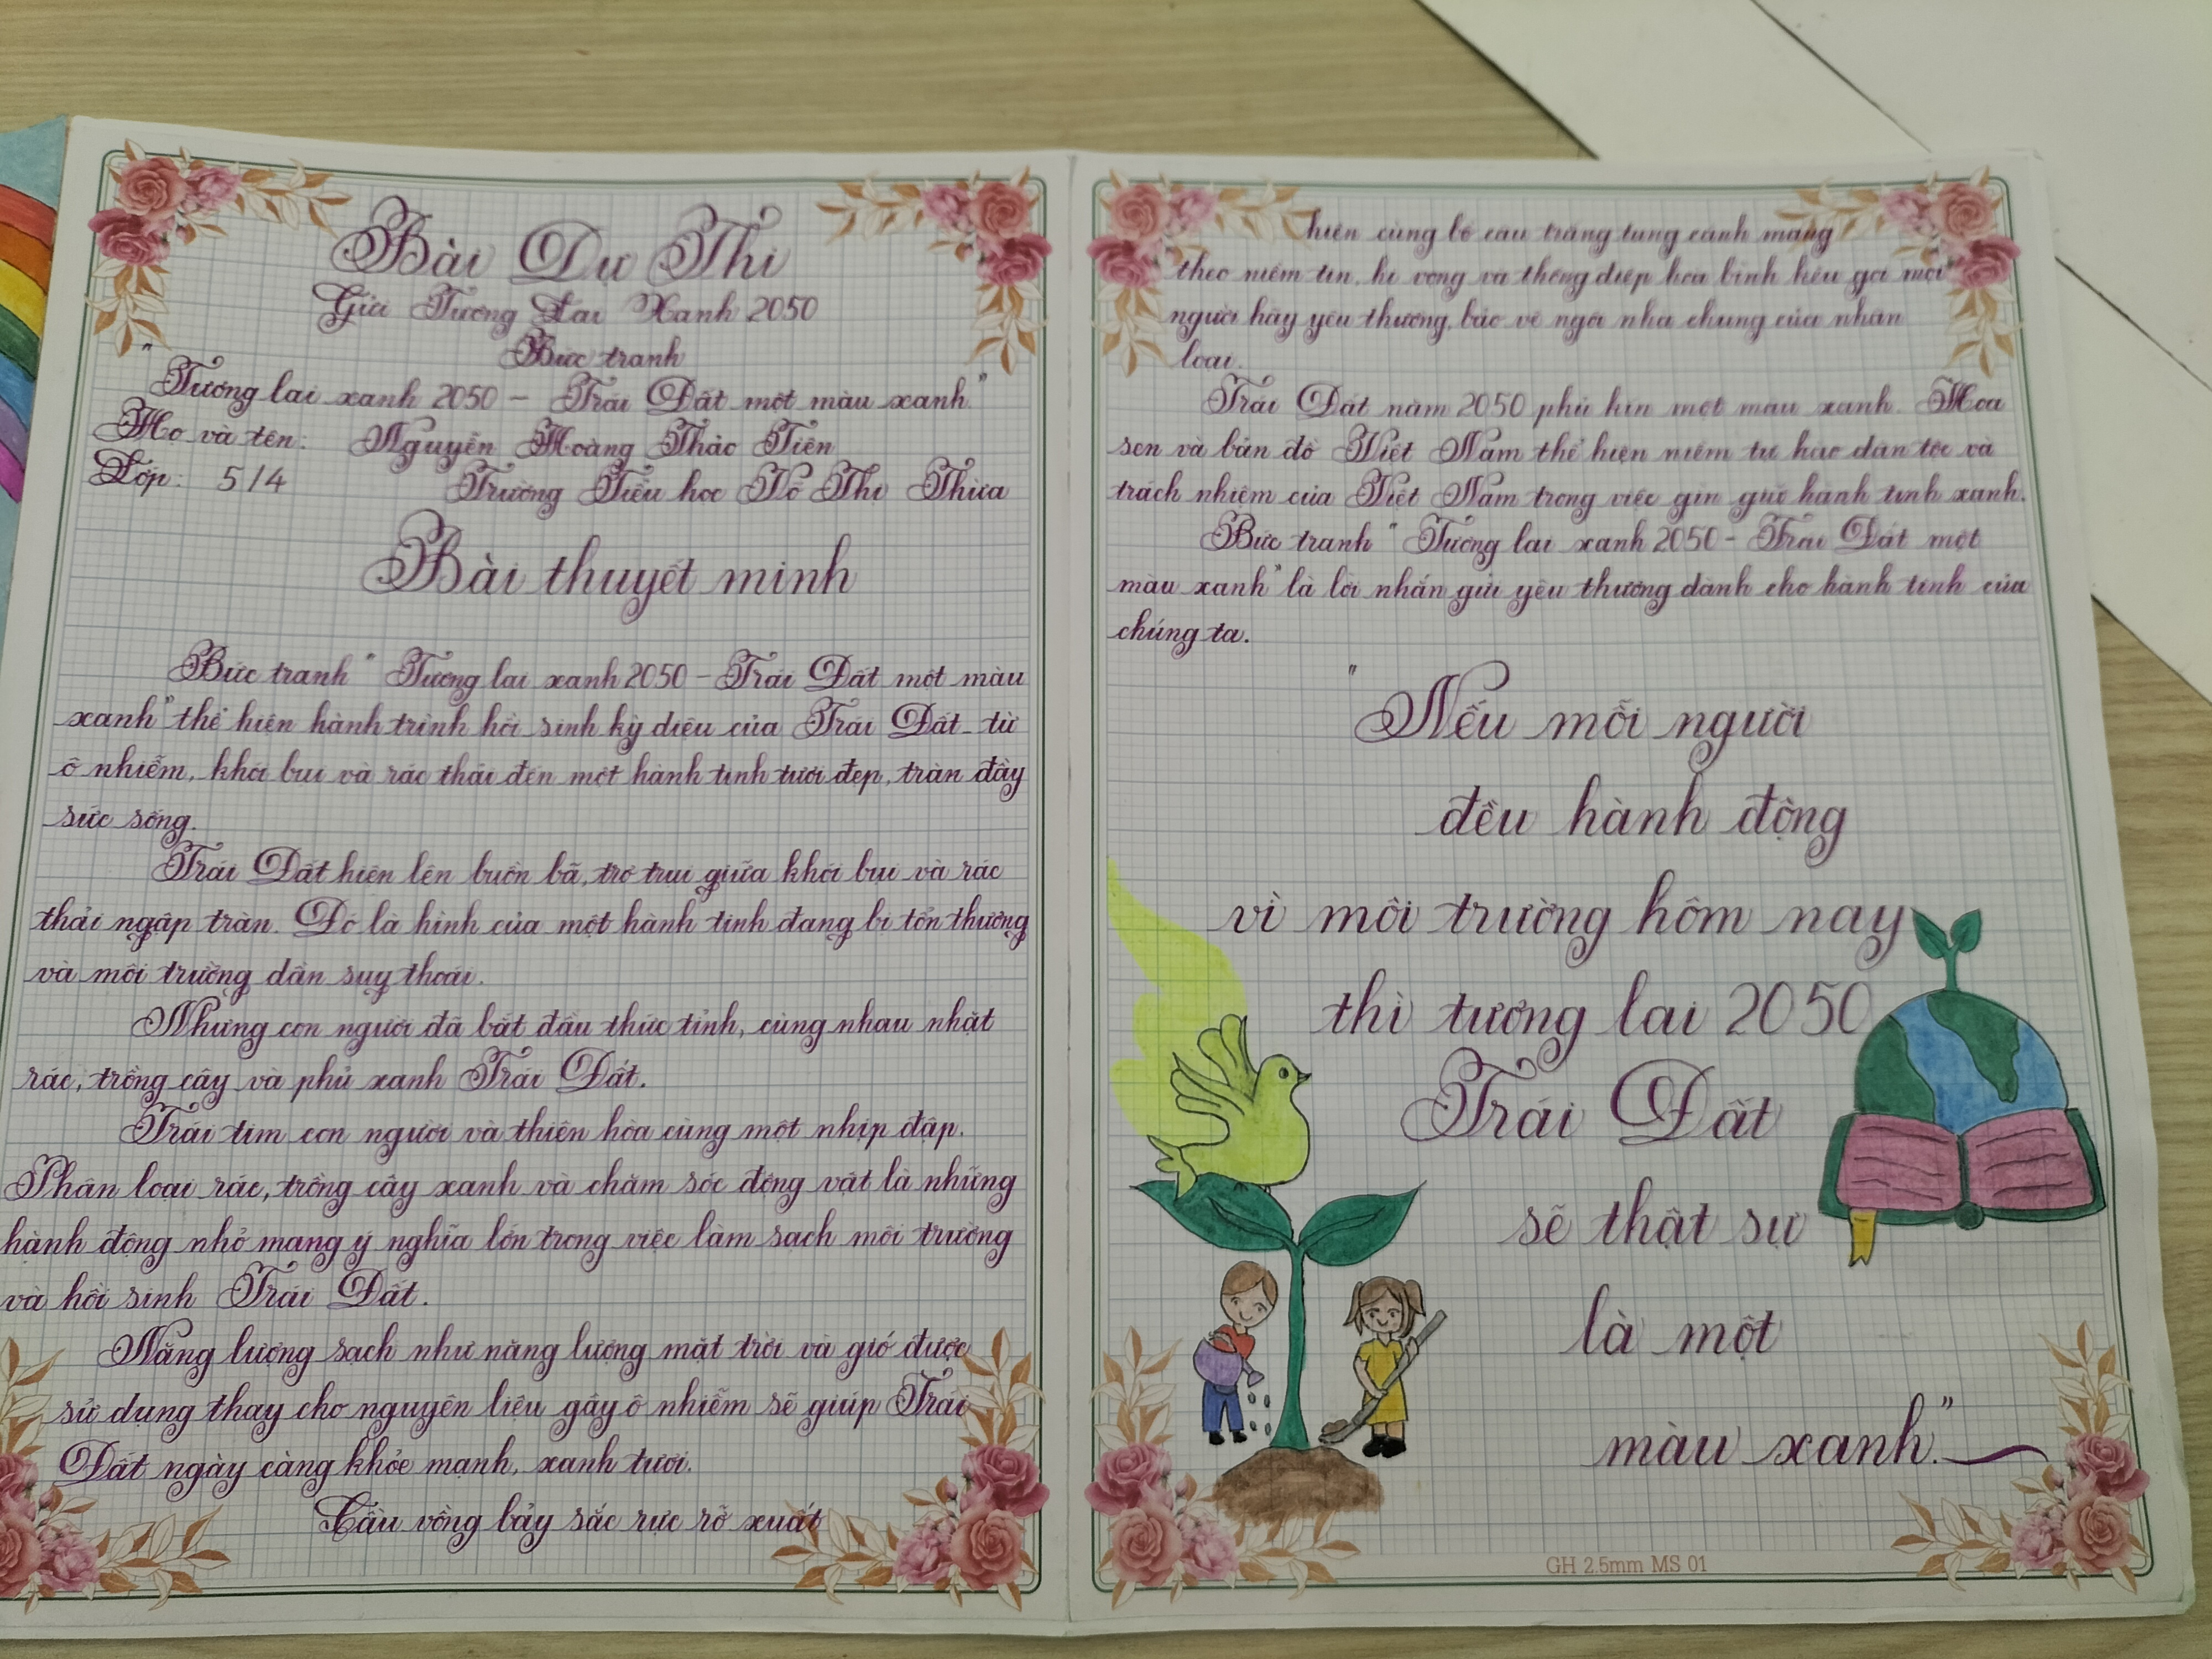 Bài Dự Thi
Gửi Tương Lai Xanh 2050
Bức tranh
"Tương lai xanh 2050 - Trái Đất một màu xanh."
Họ và tên: Nguyễn Hoàng Thảo Tiên
Lớp: 5/4 Trường Tiểu học Võ Thị Thừa
Bài thuyết minh
Bức tranh "Tương lai xanh 2050 - Trái Đất một màu
xanh" thể hiện hành trình hồi sinh kỳ diệu của Trái Đất từ
ô nhiễm, khói bụi và rác thải đến một hành tinh tươi đẹp, tràn đầy
sức sống.
Trái Đất hiện lên buồn bã, trơ trụi giữa khói bụi và rác
thải ngập tràn. Đó là hình của một hành tinh đang bị tổn thương
và môi trường dần suy thoái.
Nhưng con người đã bắt đầu thức tỉnh, cùng nhau nhặt
rác, trồng cây và phủ xanh Trái Đất.
Trái tim con người và thiên hòa cùng một nhịp đập.
Phân loại rác, trồng cây xanh và chăm sóc động vật là những
hành động nhỏ mang ý nghĩa lớn trong việc làm sạch môi trường
và hồi sinh Trái Đất.
Năng lượng sạch như năng lượng mặt trời và gió được
sử dụng thay cho nguyên liệu gây ô nhiễm sẽ giúp Trái
Đất ngày càng khỏe mạnh, xanh tươi.
Cầu vồng bảy sắc rực rỡ xuất
hiện cùng bồ câu trắng tung cánh mang
theo niềm tin, hi vọng và thông điệp hòa bình kêu gọi mọi
người hãy yêu thương, bảo vệ ngôi nhà chung của nhân
loại.
Trái Đất năm 2050 phủ kín một màu xanh. Hoa
sen và bản đồ Việt Nam thể hiện niềm tự hào dân tộc và
trách nhiệm của Việt Nam trong việc gìn giữ hành tinh xanh.
Bức tranh "Tương lai xanh 2050 - Trái Đất một
màu xanh" là lời nhắn gửi yêu thương dành cho hành tinh của
chúng ta.
"Nếu mỗi người
đều hành động
vì môi trường hôm nay
thì tương lai 2050
Trái Đất
sẽ thật sự
là một
màu xanh."
GH 2.5mm MS 01